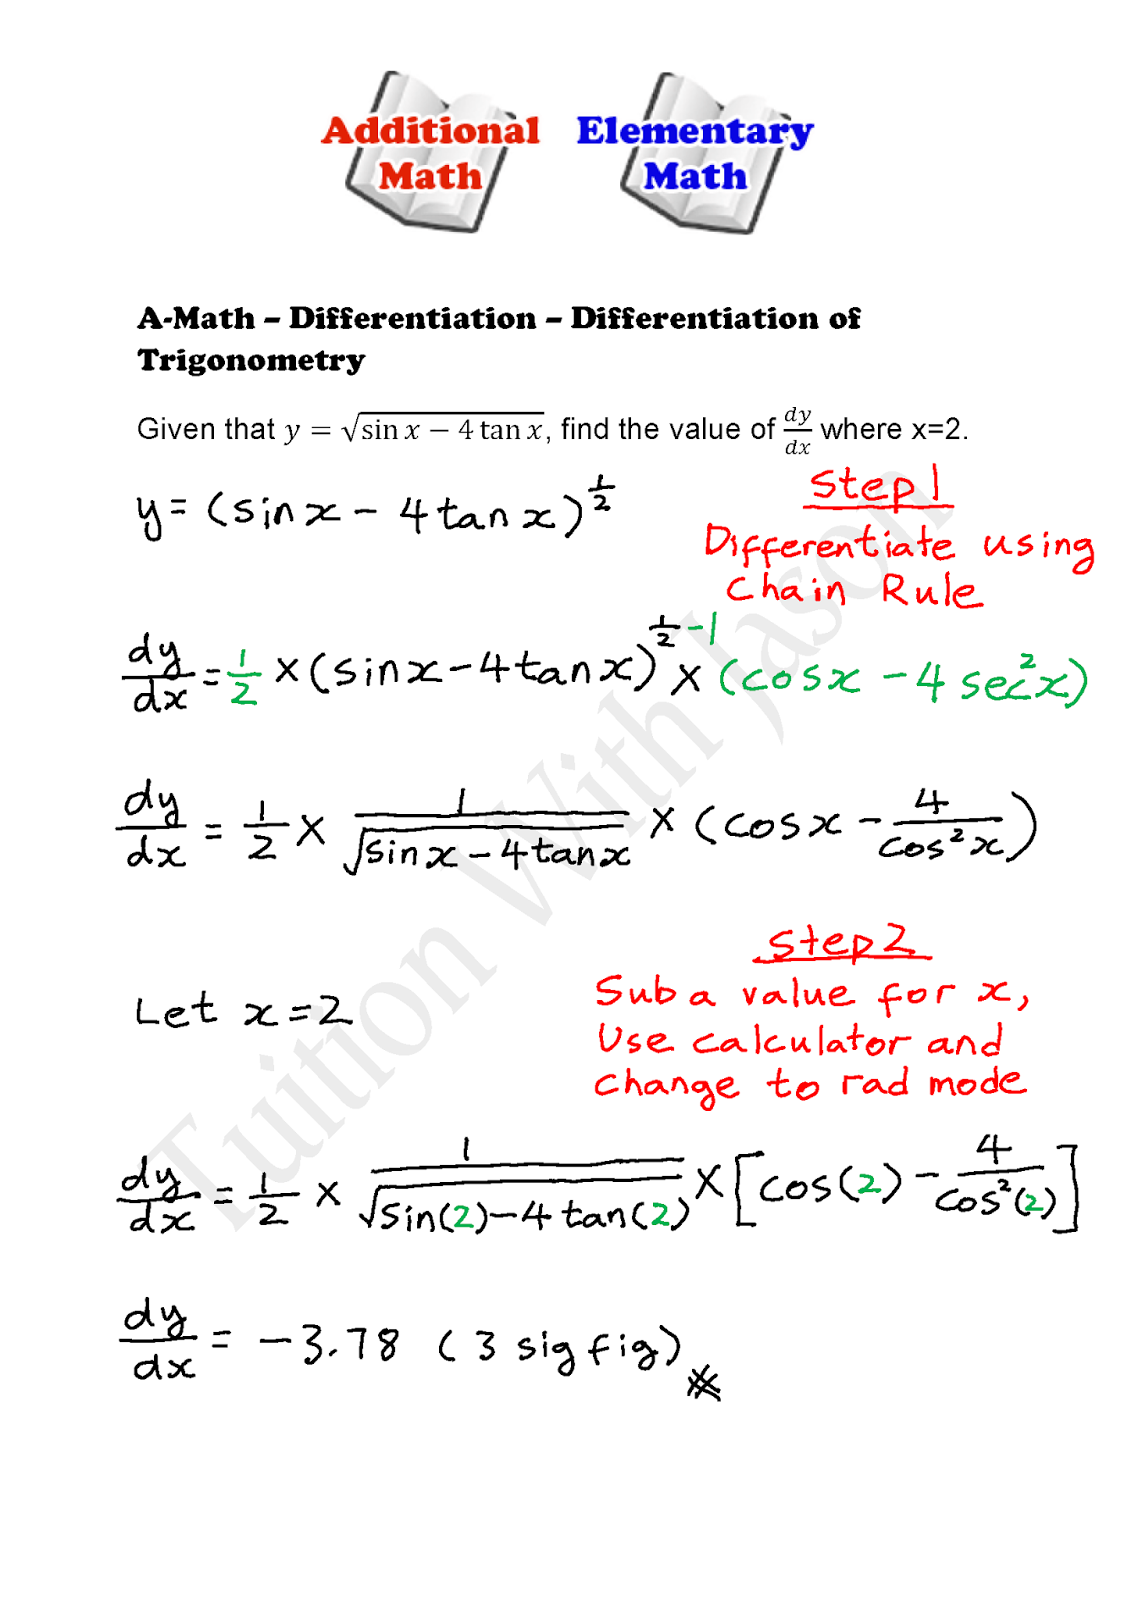 Additional Elementary
Math Math
A-Math – Differentiation – Differentiation of
Trigonometry
Given that y = √(sin x − 4 tan x), find the value of dy/dx where x=2.
y = (sin x − 4 tan x)^(1/2)
Step 1
Differentiate using
Chain Rule
dy/dx = 1/2 × (sin x − 4 tan x)^(1/2 − 1) × (cos x − 4 sec² x)
dy/dx = 1/2 × 1/√(sin x − 4 tan x) × (cos x − 4/cos² x)
Step 2
Let x = 2
Sub a value for x,
Use calculator and
change to rad mode
dy/dx = 1/2 × 1/√(sin(2) − 4 tan(2)) × [cos(2) − 4/cos²(2)]
dy/dx = −3.78 (3 sig fig)
Tuition With Jason